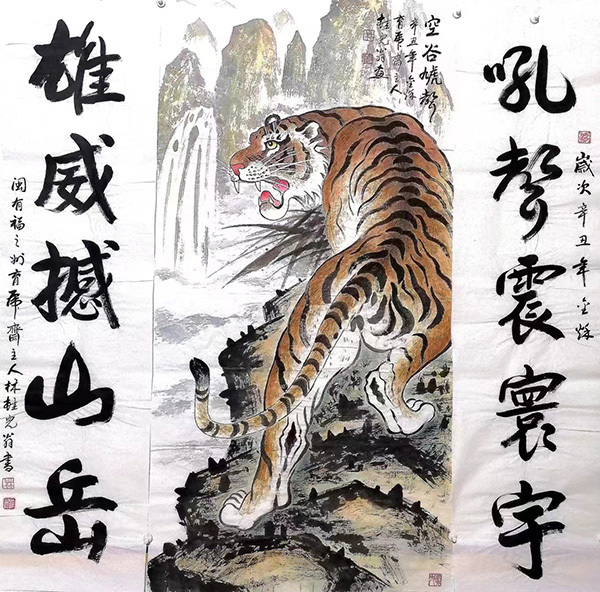 吼聲震寰宇
歲次辛丑年金秋
空谷虓聲
辛丑年金秋
育虎齋主人
桂兒翁畫
雄威撼山岳
闽有福之州育虎齋主人林桂兒翁書